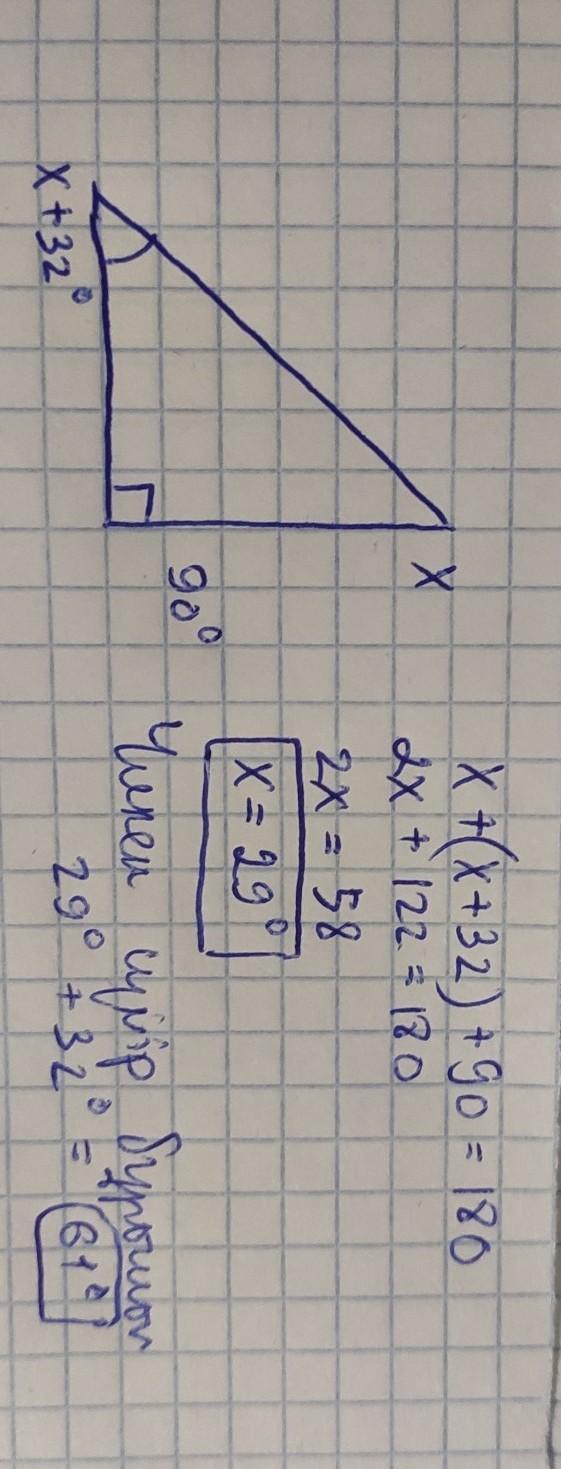 x
90°
x + 32°
x + (x + 32) + 90 = 180
2x + 122 = 180
2x = 58
x = 29°
Үлкен сүйір бұрышы
29° + 32° = 61°